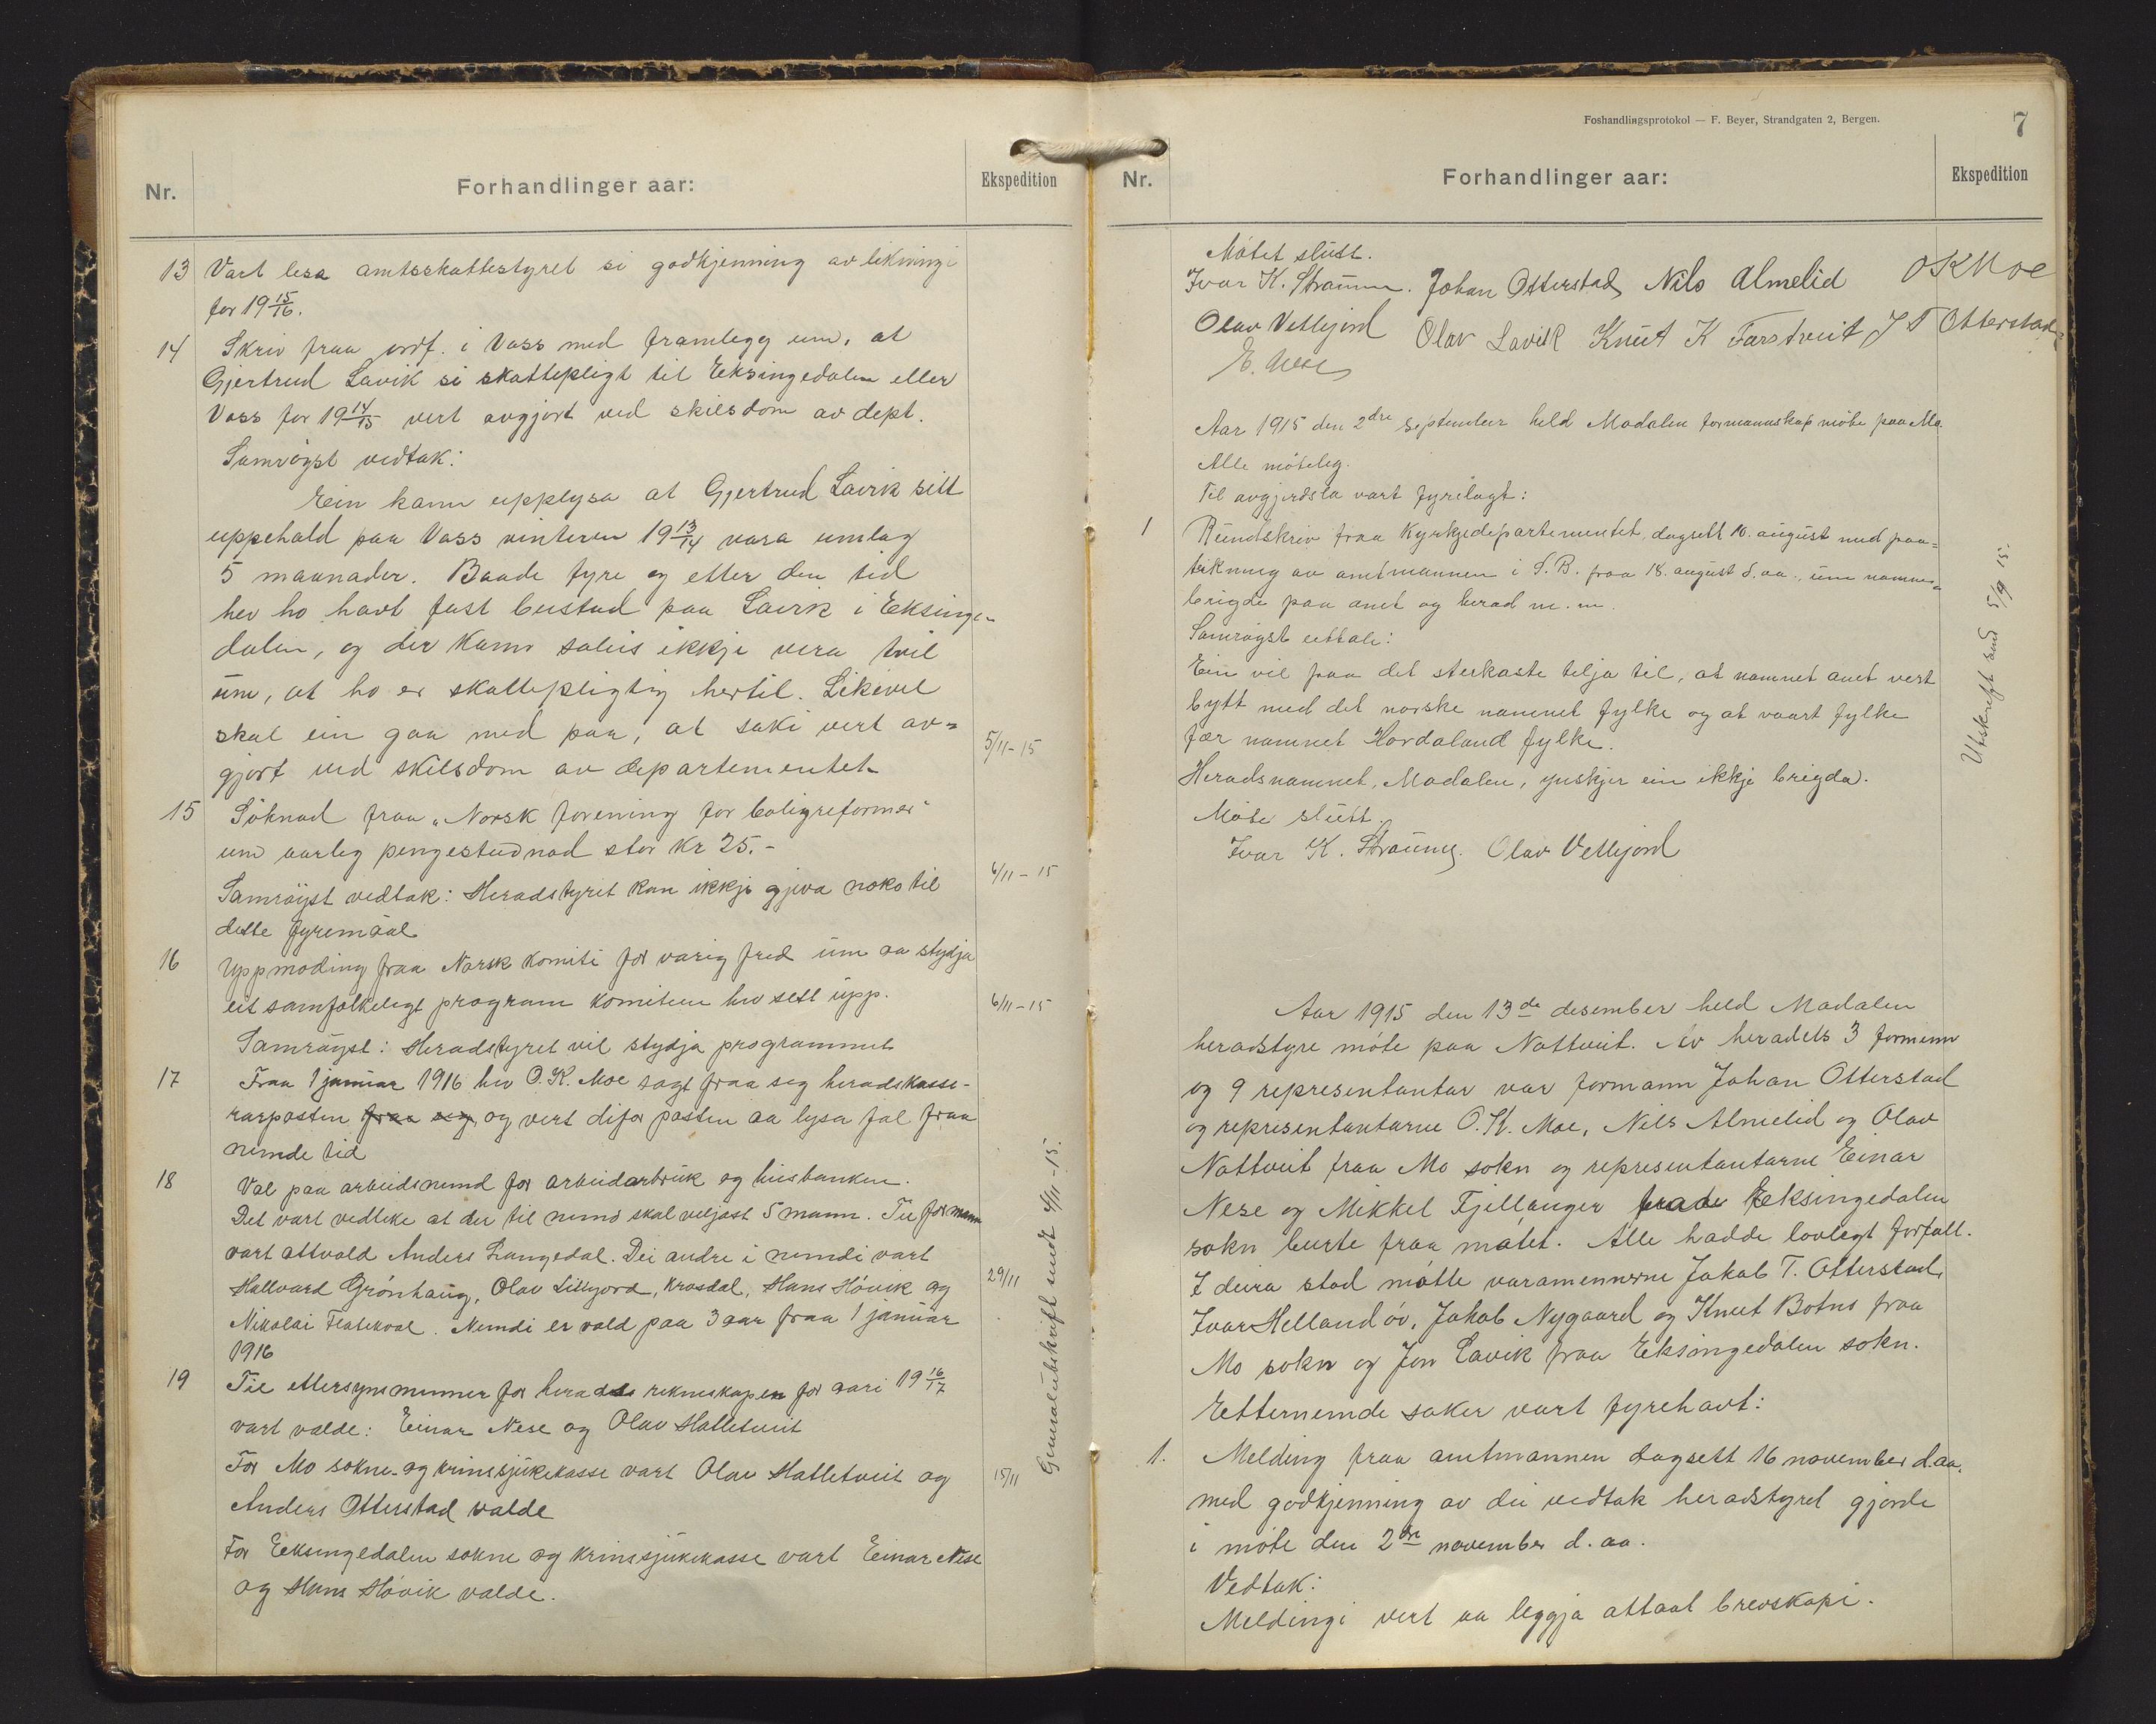 Nr.
Forhandlinger aar:
Ekspedition
13 Vart lesa amtsskattestyret si godkjenning av likningi
for 19 15/16.
14 Skriv fraa ordf. i Voss med framlegg um, at
Gjertrud Lavik si skattepligt til Eksingedalen eller
Voss for 19 14/15 vert avgjort ved skilsdom av dept.
Samrøyst vedtak:
Ein kann upplysa at Gjertrud Lavik sitt
uppehald paa Voss vinteren 19 13/14 vara umlag
5 maanader. Baade fyre og etter den tid
hev ho havt fast bustad paa Lavik i Eksinge-
dalen, og der kann soleis ikkje vera tvil
um, at ho er skattepligtig hertil. Likevel
skal ein gaa med paa, at saki vert av=
gjort ved skilsdom av departementet
5/11-15
15 Søknad fraa „Norsk forening for boligreformer"
um aarleg pengestudnad stor kr 25.-
Samrøyst vedtak: Heradstyret kan ikkje gjeva noko til
dette fyremaal
6/11-15
16 Uppmoding fraa Norsk komite for varig fred um aa stydja
eit samfolkelegt program komiteen hev sett upp.
6/11-15
Samrøyst: Heradstyret vil stydja programmet
17 Fraa 1 januar 1916 hev O. K. Moe sagt fraa seg heradskasse-
rarposten fraa seg og vert difor posten aa lysa fal fraa
nemde tid
18 Val paa arbeidsnemd for arbeidarbruk og husbanken.
Det vart vedteke at der til nemd skal veljast 5 mann. Til formann
vart attvald Anders Langedal. Dei andre i nemdi vart
Hallvard Grønhaug, Olav Litlejord, Krosdal, Hans Høvik og
29/11
Nikolai Flatekval. Nemdi er vald paa 3 aar fraa 1 januar
1916
19 Til ettersynsmenner for heradsrekneskapen for aari 19 16/17
vart valde: Einar Nese og Olav Halletveit
For Mo sokne- og krinssjukekasse vart Olav Halletveit og
15/11
Anders Otterstad valde
For Eeksingedalen sokne og krinssjukekasse vart Einar Nese
og Hans Høvik valde.
Generalutskrift sendt 4/11-15.
Foshandlingsprotokol — F. Beyer, Strandgaten 2, Bergen.
7
Nr.
Forhandlinger aar:
Ekspedition
Møtet slutt.
Ivar K. Straume. Johan Otterstad Nils Almelid O K Moe
Olav Vetlejord Olav Lavik Knut K Farstveit J T Otterstad
E. Nese
Aar 1915 den 2dre September held Modalen formannskap møte paa Mo
Alle møteleg.
Til avgjerdsla vart fyrilagt:
1 Rundskriv fraa Kyrkjedepartementet, dagsett 10. august med paa=
teikning av amtmannen i S. B. fraa 18. august d. aa., um namne=
brigde paa amt og herad m. m.
Samrøyst uttale:
Ein vil paa det sterkaste telja til, at namnet amt vert
bytt med det norske namnet fylke og at vaart fylke
fær namnet Hordaland fylke.
Heradsnamnet, Modalen, ynskjer ein ikkje brigda.
Møte slutt.
Ivar K. Straume. Olav Vetlejord
Utskrift send 5/9 15.
Aar 1915 den 13de desember held Modalen
heradstyre møte paa Nottveit. Av heradets 3 formenn
og 9 representantar var formann Johan Otterstad
og representantarne O. K. Moe, Nils Almelid og Olav
Nottveit fraa Mo sokn og representantarne Einar
Nese og Mikkel Fjellanger fraa Eeksingedalen
sokn burte fraa møtet. Alle hadde lovlegt forfall.
I deira stad møtte varamennerne Jakob T. Otterstad,
Ivar Helland øv, Jakob Nygaard og Knut Botno fraa
Mo sokn og Jon Lavik fraa Eksingedalen sokn.
Etternemde saker vart fyrehavt:
1. Melding fraa amtmannen dagsett 16 november d.aa.
med godkjenning av dei vedtak heradstyret gjorde
i møte den 2dre november d. aa.
Vedtak:
Meldingi vert aa leggja attaat brevskapi.